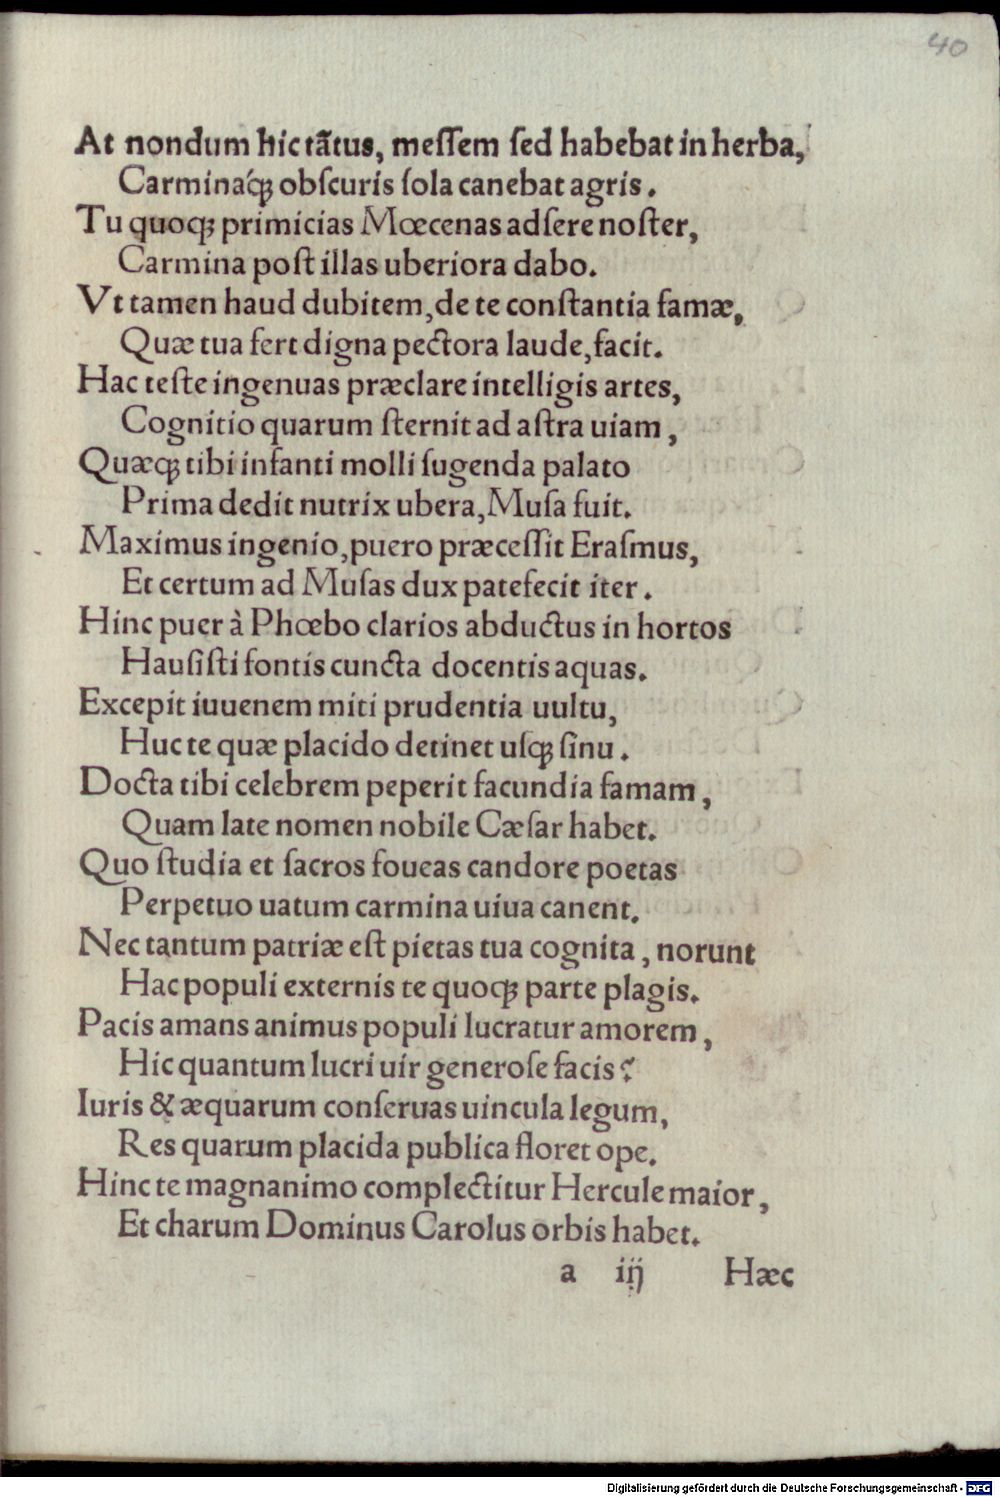 40
At nondum hic tãtus, meſſem ſed habebat in herba,
Carminaq́ꝫ obſcuris ſola canebat agris.
Tu quoqꝫ primicias Mœcenas adſere noſter,
Carmina poſt illas uberiora dabo.
Vt tamen haud dubitem, de te conſtantia famæ,
Quæ tua fert digna pectora laude, facit.
Hac teſte ingenuas præclare intelligis artes,
Cognitio quarum ſternit ad aſtra uiam,
Quæqꝫ tibi infanti molli ſugenda palato
Prima dedit nutrix ubera, Muſa fuit.
Maximus ingenio, puero præceſſit Eraſmus,
Et certum ad Muſas dux patefecit iter.
Hinc puer à Phœbo clarios abductus in hortos
Hauſiſti fontis cuncta docentis aquas.
Excepit iuuenem miti prudentia uultu,
Huc te quæ placido detinet uſqꝫ ſinu.
Docta tibi celebrem peperit facundia famam,
Quam late nomen nobile Cæſar habet.
Quo ſtudia et ſacros foueas candore poetas
Perpetuo uatum carmina uiua canent.
Nec tantum patriæ eſt pietas tua cognita, norunt
Hac populi externis te quoqꝫ parte plagis.
Pacis amans animus populi lucratur amorem,
Hic quantum lucri uir generoſe facis?
Iuris & æquarum conſeruas uincula legum,
Res quarum placida publica floret ope.
Hinc te magnanimo complectitur Hercule maior,
Et charum Dominus Carolus orbis habet.
a iij Hæc
Digitalisierung gefördert durch die Deutsche Forschungsgemeinschaft - DFG